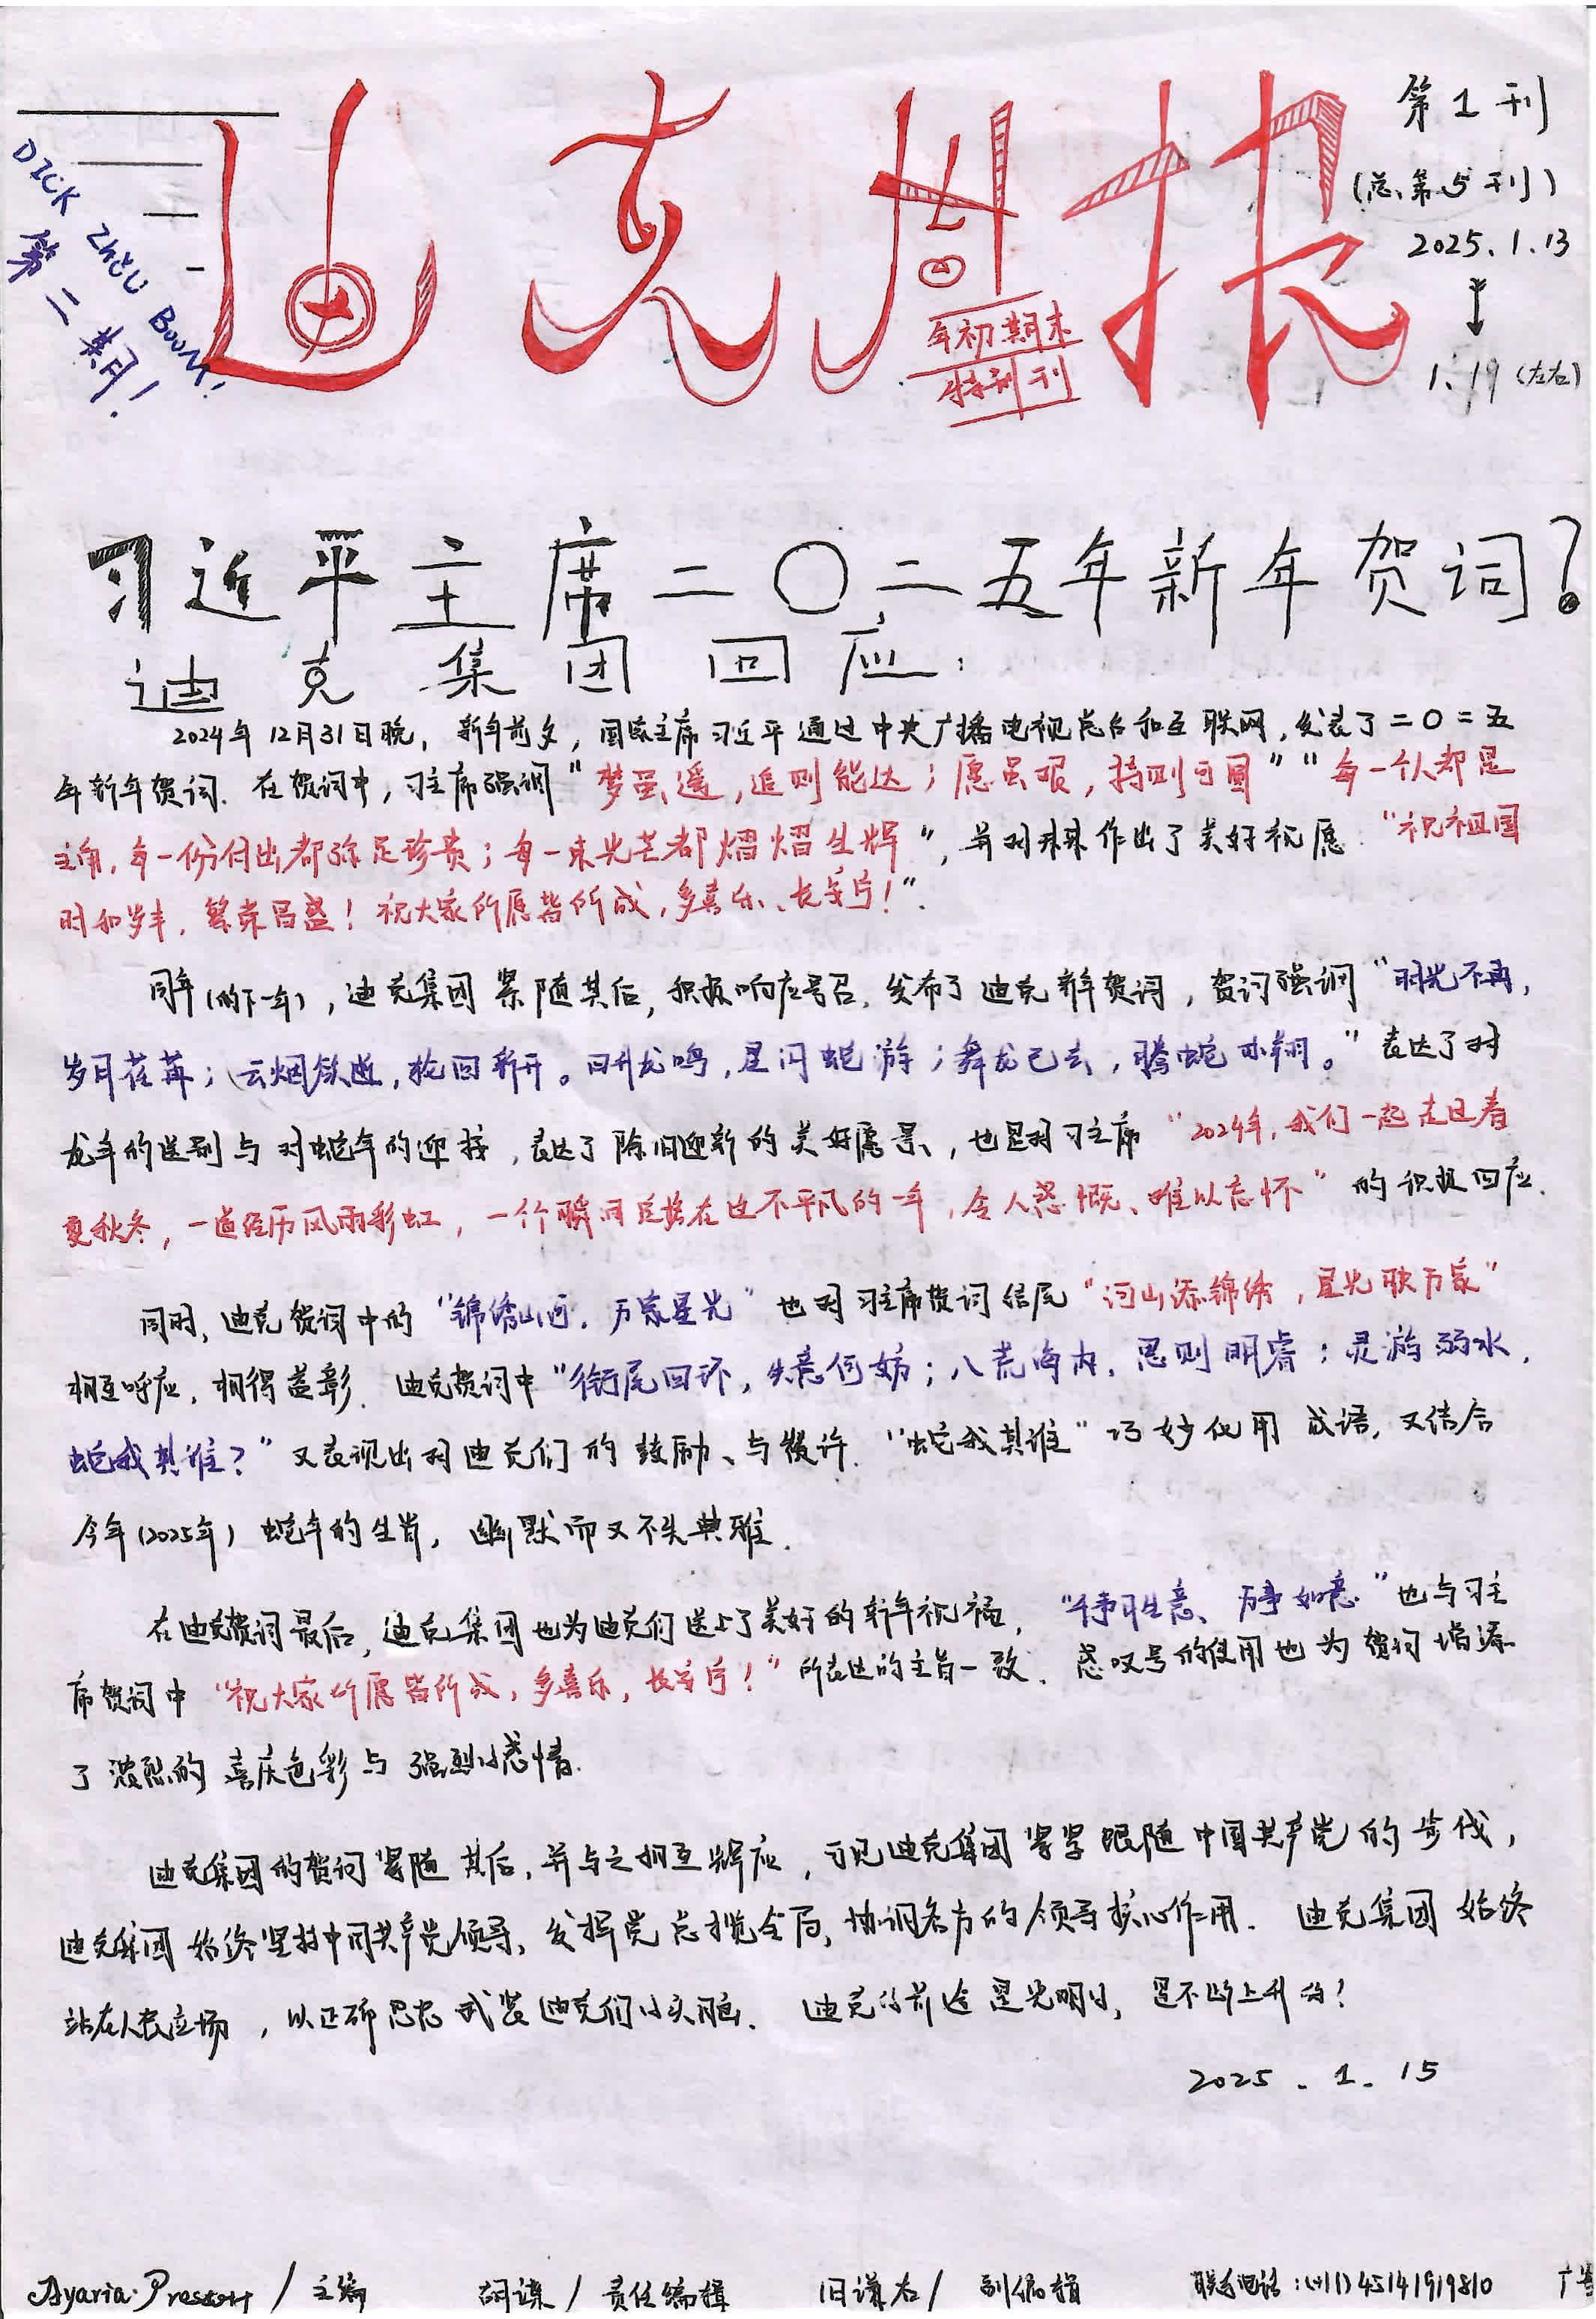 迪克周报
年初期末
特刊
第1刊
(总第5刊)
2025.1.13
↓
1.19(左右)
DICK ZHOU BOOM!
第二期!
习近平主席二〇二五年新年贺词?
迪克集团回应:
2024年12月31日晚,新年前夕,国家主席习近平通过中央广播电视总台和互联网,发表了二〇二五
年新年贺词.在贺词中,习主席强调"梦虽遥,追则能达;愿虽艰,持则可圆""每一个人都是
主角,每一份付出都弥足珍贵;每一束光芒都熠熠生辉",并对未来作出了美好祝愿."祝祖国
时和岁丰,繁荣昌盛!祝大家所愿皆所成,多喜乐、长安宁!".
同年(的下一年),迪克集团紧随其后,积极响应号召,发布了迪克新年贺词,贺词强调"时光不再,
岁月荏苒;云烟纵逝,轮回新开。日升龙鸣,星闪蛇游;舞龙已去,腾蛇亦翔。"表达了对
龙年的送别与对蛇年的迎接,表达了除旧迎新的美好愿景,也是对习主席"2024年,我们一起走过春
夏秋冬,一道经历风雨彩虹,一个个瞬间定格在这不平凡的一年,令人感慨、难以忘怀"的积极回应.
同时,迪克贺词中的"锦绣山河,万家星光"也对习主席贺词结尾"河山添锦绣,星光映万家"
相互呼应,相得益彰.迪克贺词中"衔尾回环,失意何妨;八荒海内,思则明睿;灵游弱水,
蛇我其谁?"又表现出对迪克们的鼓励、与赞许."蛇我其谁"巧妙化用成语,又结合
今年(2025年)蛇年的生肖,幽默而又不失典雅.
在迪克贺词最后,迪克集团也为迪克们送上了美好的新年祝福,"事事生意、万事如意"也与习主
席贺词中"祝大家所愿皆所成,多喜乐,长安宁!"所表达的主旨一致.感叹号的使用也为贺词增添
了浓烈的喜庆色彩与强烈的感情.
迪克集团的贺词紧随其后,并与之相互辉应,可见迪克集团紧紧跟随中国共产党的步伐,
迪克集团始终坚持中国共产党领导,发挥党总揽全局,协调各方的领导核心作用.迪克集团始终
站在人民立场,以正确思想武装迪克们的头脑.迪克的前途是光明的,是不断上升的!
2025.1.15
Ayaria·Presson/主编 胡谋/责任编辑 旧谋右/副编辑 联系电话:(+11)45141919810